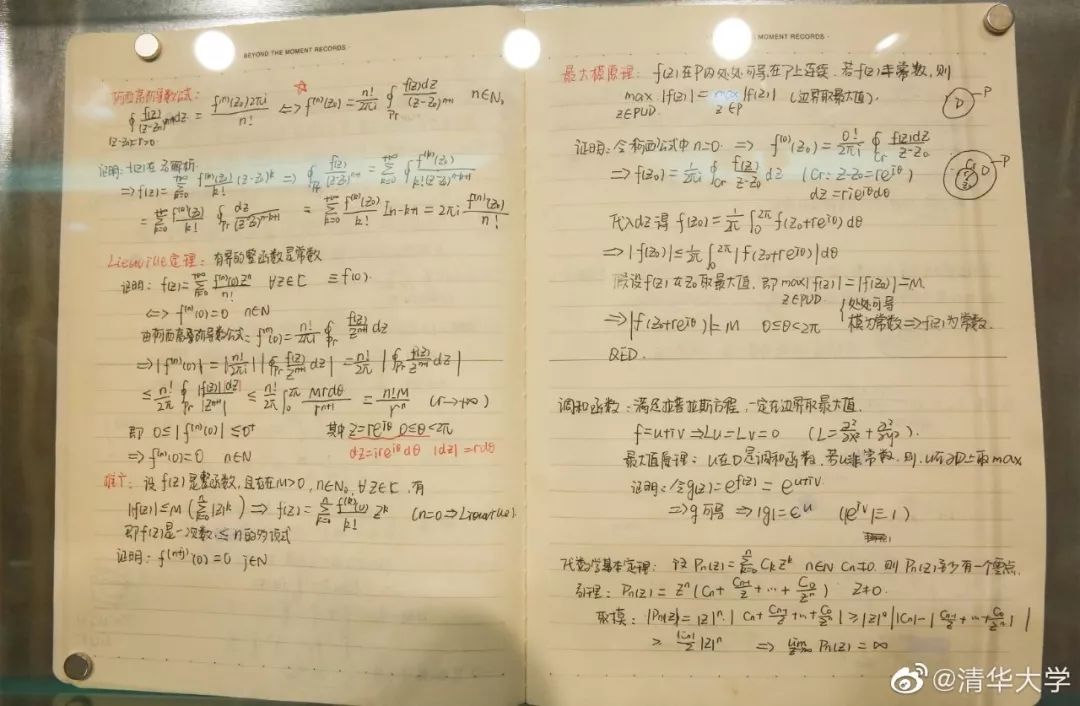 BEYOND THE MOMENT RECORDS ·
柯西高阶导数公式:
∮ f(z)/(z-z₀)ⁿ⁺¹ dz = f⁽ⁿ⁾(z₀)2πi / n! ⇔ f⁽ⁿ⁾(z₀) = n!/2πi ∮_Pr f(z)dz/(z-z₀)ⁿ⁺¹ n∈N₀
|z-z₀|=r>0
证明: f(z)在 z₀解析.
⇒ f(z) = Σ_{k=0}^{+∞} f⁽ᵏ⁾(z₀)/k! (z-z₀)ᵏ ⇒ ∮_Pr f(z)/(z-z₀)ⁿ⁺¹ = Σ_{k=0}^{+∞} ∮ f⁽ᵏ⁾(z₀)/k!(z-z₀)ⁿ⁻ᵏ⁺¹
= Σ_{k=0}^{+∞} f⁽ᵏ⁾(z₀)/k! ∮_Pr dz/(z-z₀)ⁿ⁻ᵏ⁺¹ = Σ_{k=0}^{+∞} f⁽ᵏ⁾(z₀)/k! I_{n-k+1} = 2πi f⁽ⁿ⁾(z₀)/n!
定理: 有界的整函数是常数
证明: f(z) = Σ_{n=0}^{+∞} f⁽ⁿ⁾(0)zⁿ/n! ∀z∈C ≡ f(0).
⇔ f⁽ⁿ⁾(0)=0 n∈N
由柯西高阶导数公式: f⁽ⁿ⁾(0) = n!/2πi ∮_Pr f(z)/zⁿ⁺¹ dz
⇒ |f⁽ⁿ⁾(0)| = |n!/2πi| |∮_Pr f(z)/zⁿ⁺¹ dz| = n!/2π |∮_Pr f(z)/zⁿ⁺¹ dz|
≤ n!/2π ∮_Pr |f(z)||dz|/|zⁿ⁺¹| ≤ n!/2π ∫₀^{2π} Mrdθ/rⁿ⁺¹ = n!M/rⁿ (r→+∞)
即 0≤|f⁽ⁿ⁾(0)|≤0⁺ 其中 z=re^{iθ} 0≤θ<2π
⇒ f⁽ⁿ⁾(0)=0 n∈N dz=ire^{iθ}dθ |dz|=rdθ
推广: 设 f(z)是整函数, 且存在M>0, n∈N₀, ∀z∈C, 有
|f(z)|≤M(Σ_{k=0}^{n}|z|ᵏ) ⇒ f(z) = Σ_{k=0}^{n} f⁽ᵏ⁾(0)/k! zᵏ (n=0⇒
即f(z)是一次数≤n的多项式
证明: f⁽ⁿ⁺ʲ⁾(0)=0 j∈N
MOMENT RECORDS ·
最大模原理: f(z)在D内处处可导,在P上连续. 若f(z)非常数, 则
max_{z∈PUD} |f(z)| = max_{z∈P} |f(z)| (边界取最大值).
D P
证明: 令柯西公式中 n=0. ⇒ f⁽⁰⁾(z₀) = 0!/2πi ∮_Cr f(z)dz/z-z₀
⇒ f(z₀) = 1/2πi ∮_Cr f(z)/z-z₀ dz (Cr: z-z₀=re^{iθ})
dz=rie^{iθ}dθ
Cr D P
z₀
代入dz得 f(z₀) = 1/2π ∫₀^{2π} f(z₀+re^{iθ})dθ
⇒ |f(z₀)| ≤ 1/2π ∫₀^{2π} |f(z₀+re^{iθ})|dθ
假设f(z)在z₀取最大值, 即 max_{z∈PUD} |f(z)| = |f(z₀)| = M.
⇒ |f(z₀+re^{iθ})| = M 0≤θ<2π { 处处可导
模为常数 ⇒ f(z)为常数.
QED.
调和函数: 满足拉普拉斯方程, 一定在边界取最大值.
f=u+iv ⇒ Lu=Lv=0 (L=∂²/∂x²+∂²/∂y²).
最大值原理: u在D是调和函数, 若u非常数, 则, u在∂D上取max
证明: 令g(z)=e^{f(z)}=e^{u+iv}
⇒ g可导 ⇒ |g|=eᵘ (|e^{iv}|=1)
代数学基本定理: 设 Pn(z) = Σ_{k=0}^{n} Ckzᵏ n∈N Cn≠0. 则 Pn(z)至少有一个零点.
引理: Pn(z) = zⁿ(Cn + Cn-1/z + ⋯ + C0/zⁿ) z≠0.
取模: |Pn(z)| = |z|ⁿ·|Cn + Cn-1/z + ⋯ + C0/zⁿ| ≥ |z|ⁿ||Cn| - |Cn-1/z + ⋯ + C0/zⁿ||
≥ |Cn|/2 |z|ⁿ ⇒ lim_{z→∞} Pn(z) = ∞
@清华大学